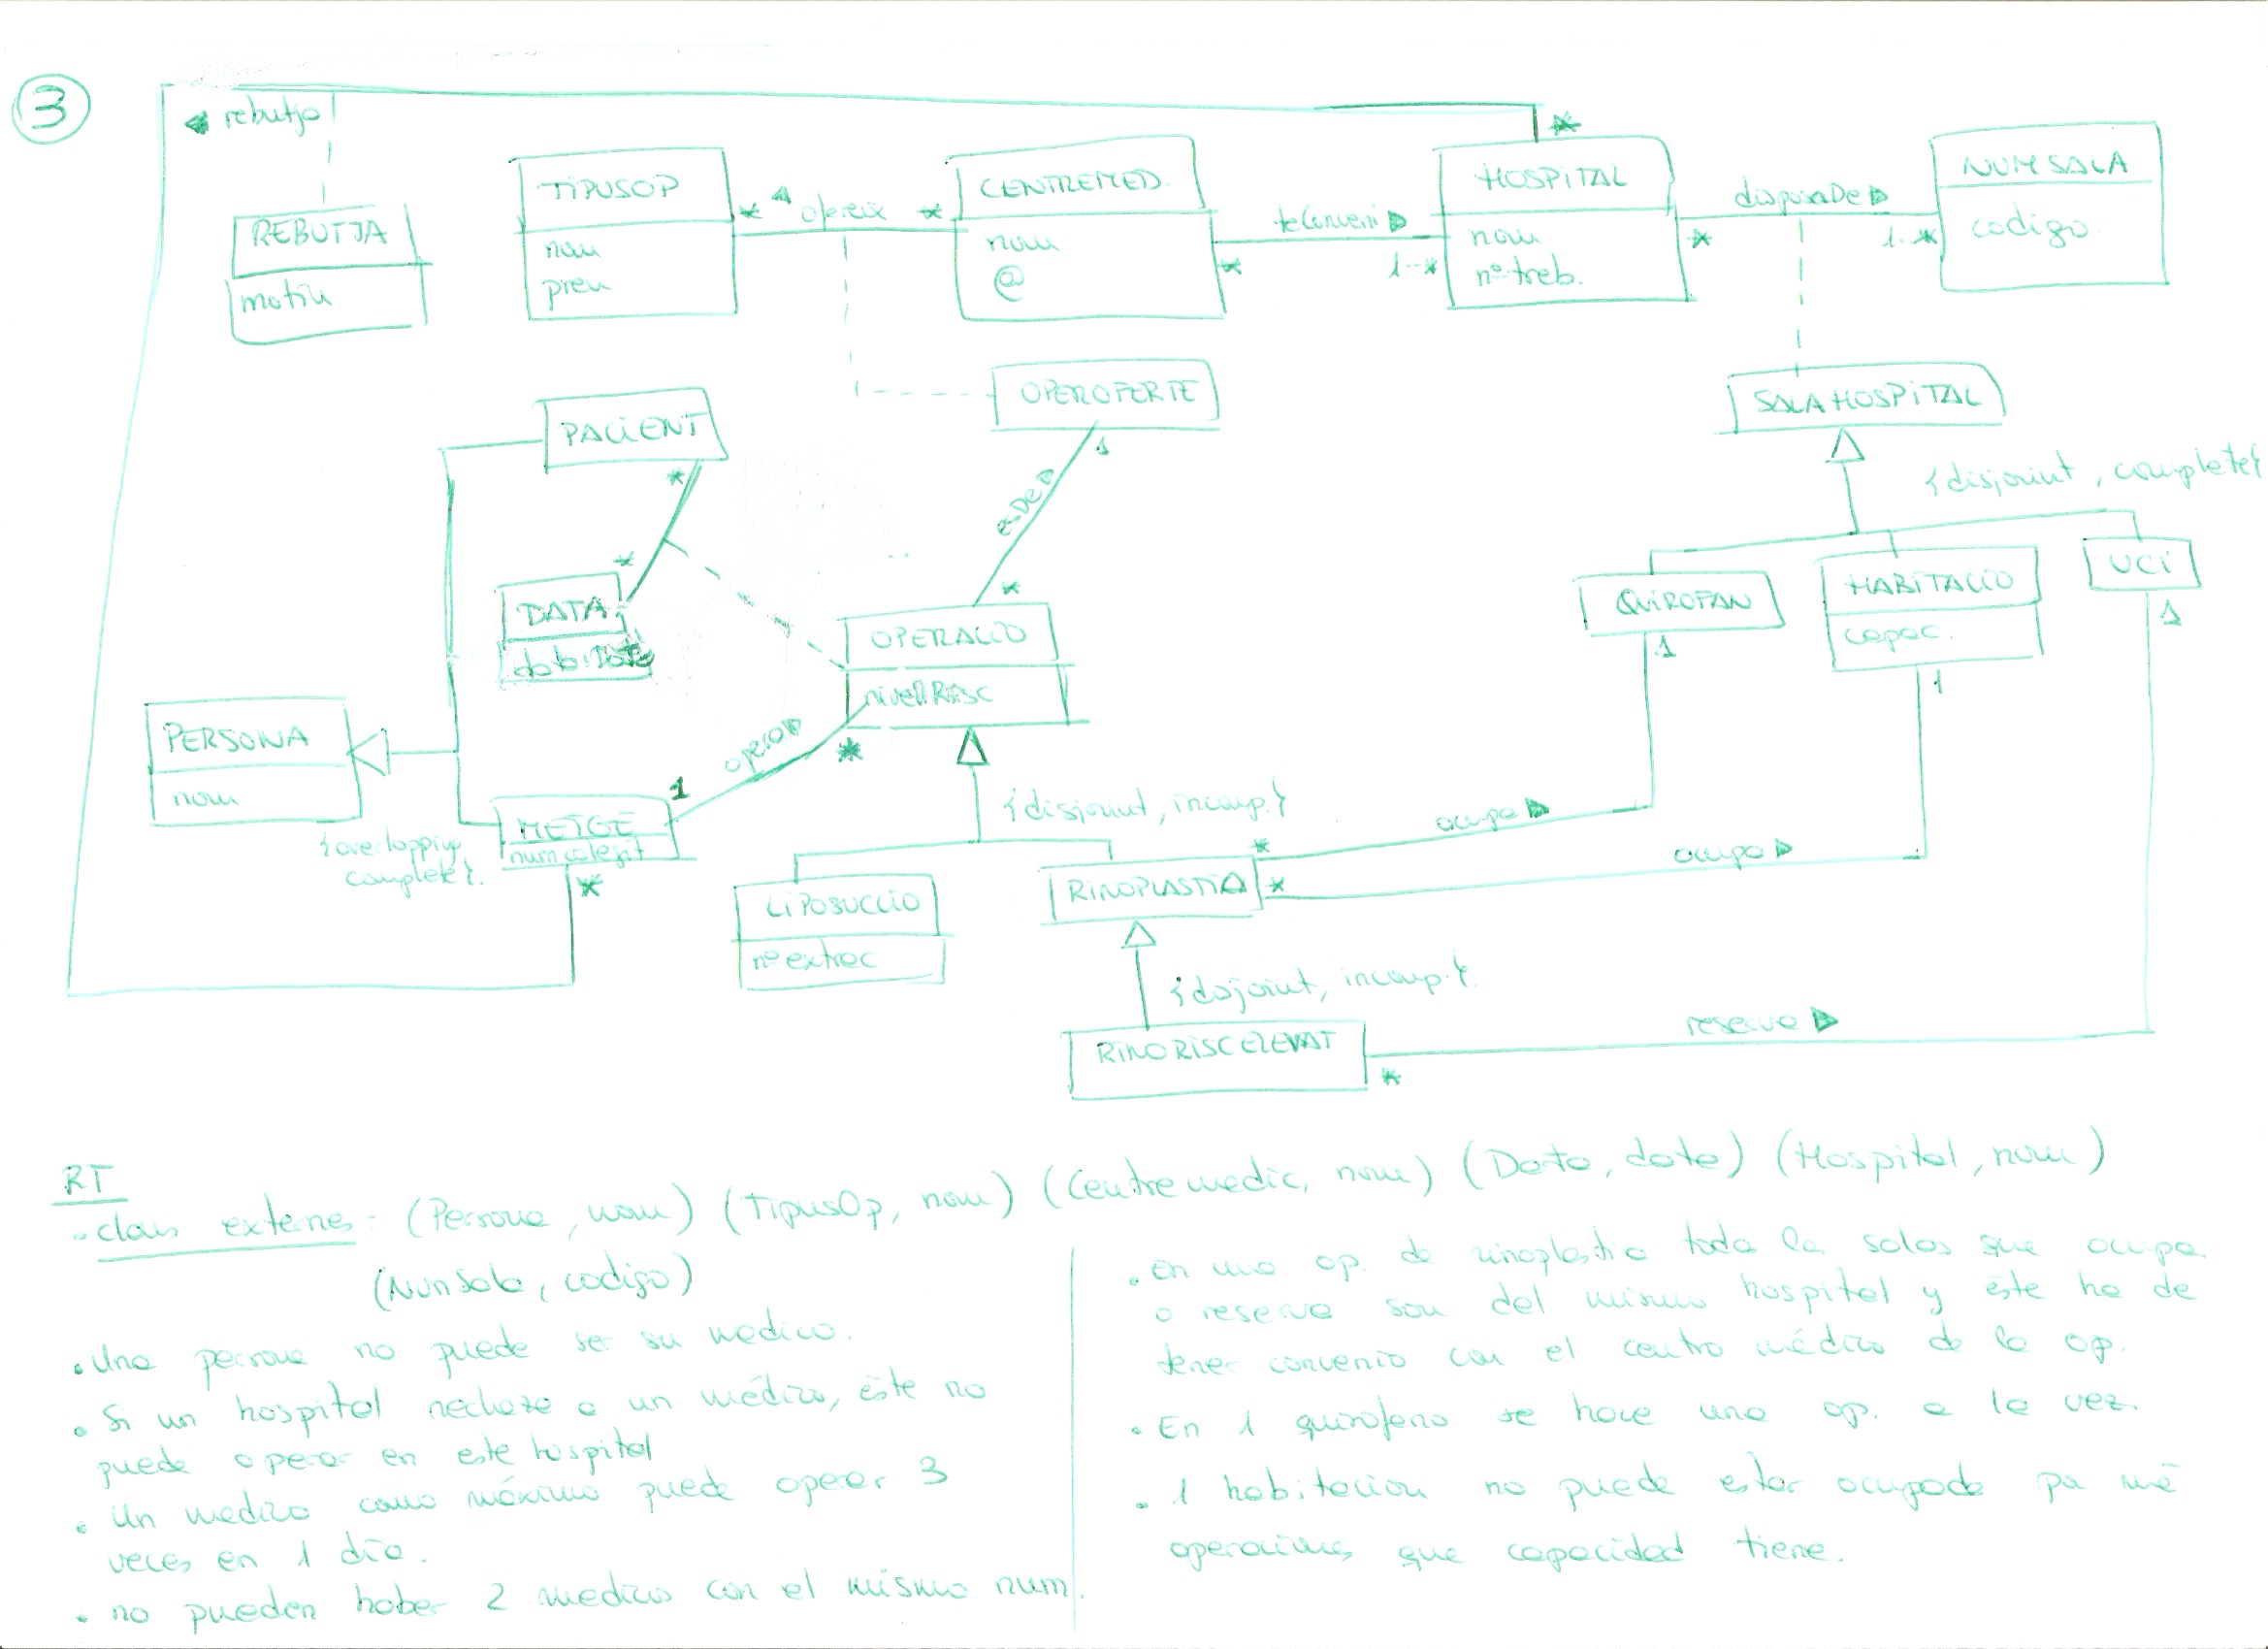 3
rebutja
REBUTJA
motiu
TIPUSOP
nom
preu
* ofereix *
CENTREMED.
nom
@
teConveni
* 1..*
HOSPITAL
*
nom
nº treb.
disposaDe
* 1..*
NUMSALA
codigo
PACIENT
*
OPEROFERTE
1
SALAHOSPITAL
{disjoint, complete}
*
DATA
*
OPERACIO
nivellRisc
*
QUIROFAN
1
HABITACIO
capac.
1
UCI
1
PERSONA
nom
{overlapping,
complete}.
METGE
num colegit
*
1 opera *
{disjoint, incomp.}
LIPOSUCCIO
nº extrac
RINOPLASTIA
* ocupa
* ocupa
{disjoint, incomp.}
RINORISCELEVAT
* reserva
RT
claus externes: (Persona, nom) (TipusOp, nom) (Centre medic, nom) (Data, data) (Hospital, nom)
(NumSala, codigo)
• Una persona no puede ser su medico.
• Si un hospital rechaza a un médico, éste no
puede operar en este hospital
• Un medico como máximo puede operar 3
veces en 1 día.
• no pueden haber 2 medicos con el mismo num.
• En una op. de rinoplastia toda las salas que ocupa
o reserva son del mismo hospital y éste ha de
tener convenio con el centro médico de la op.
• En 1 quirofano se hace una op. a la vez.
• 1 habitacion no puede estar ocupada por
operaciones que capacidad tiene.